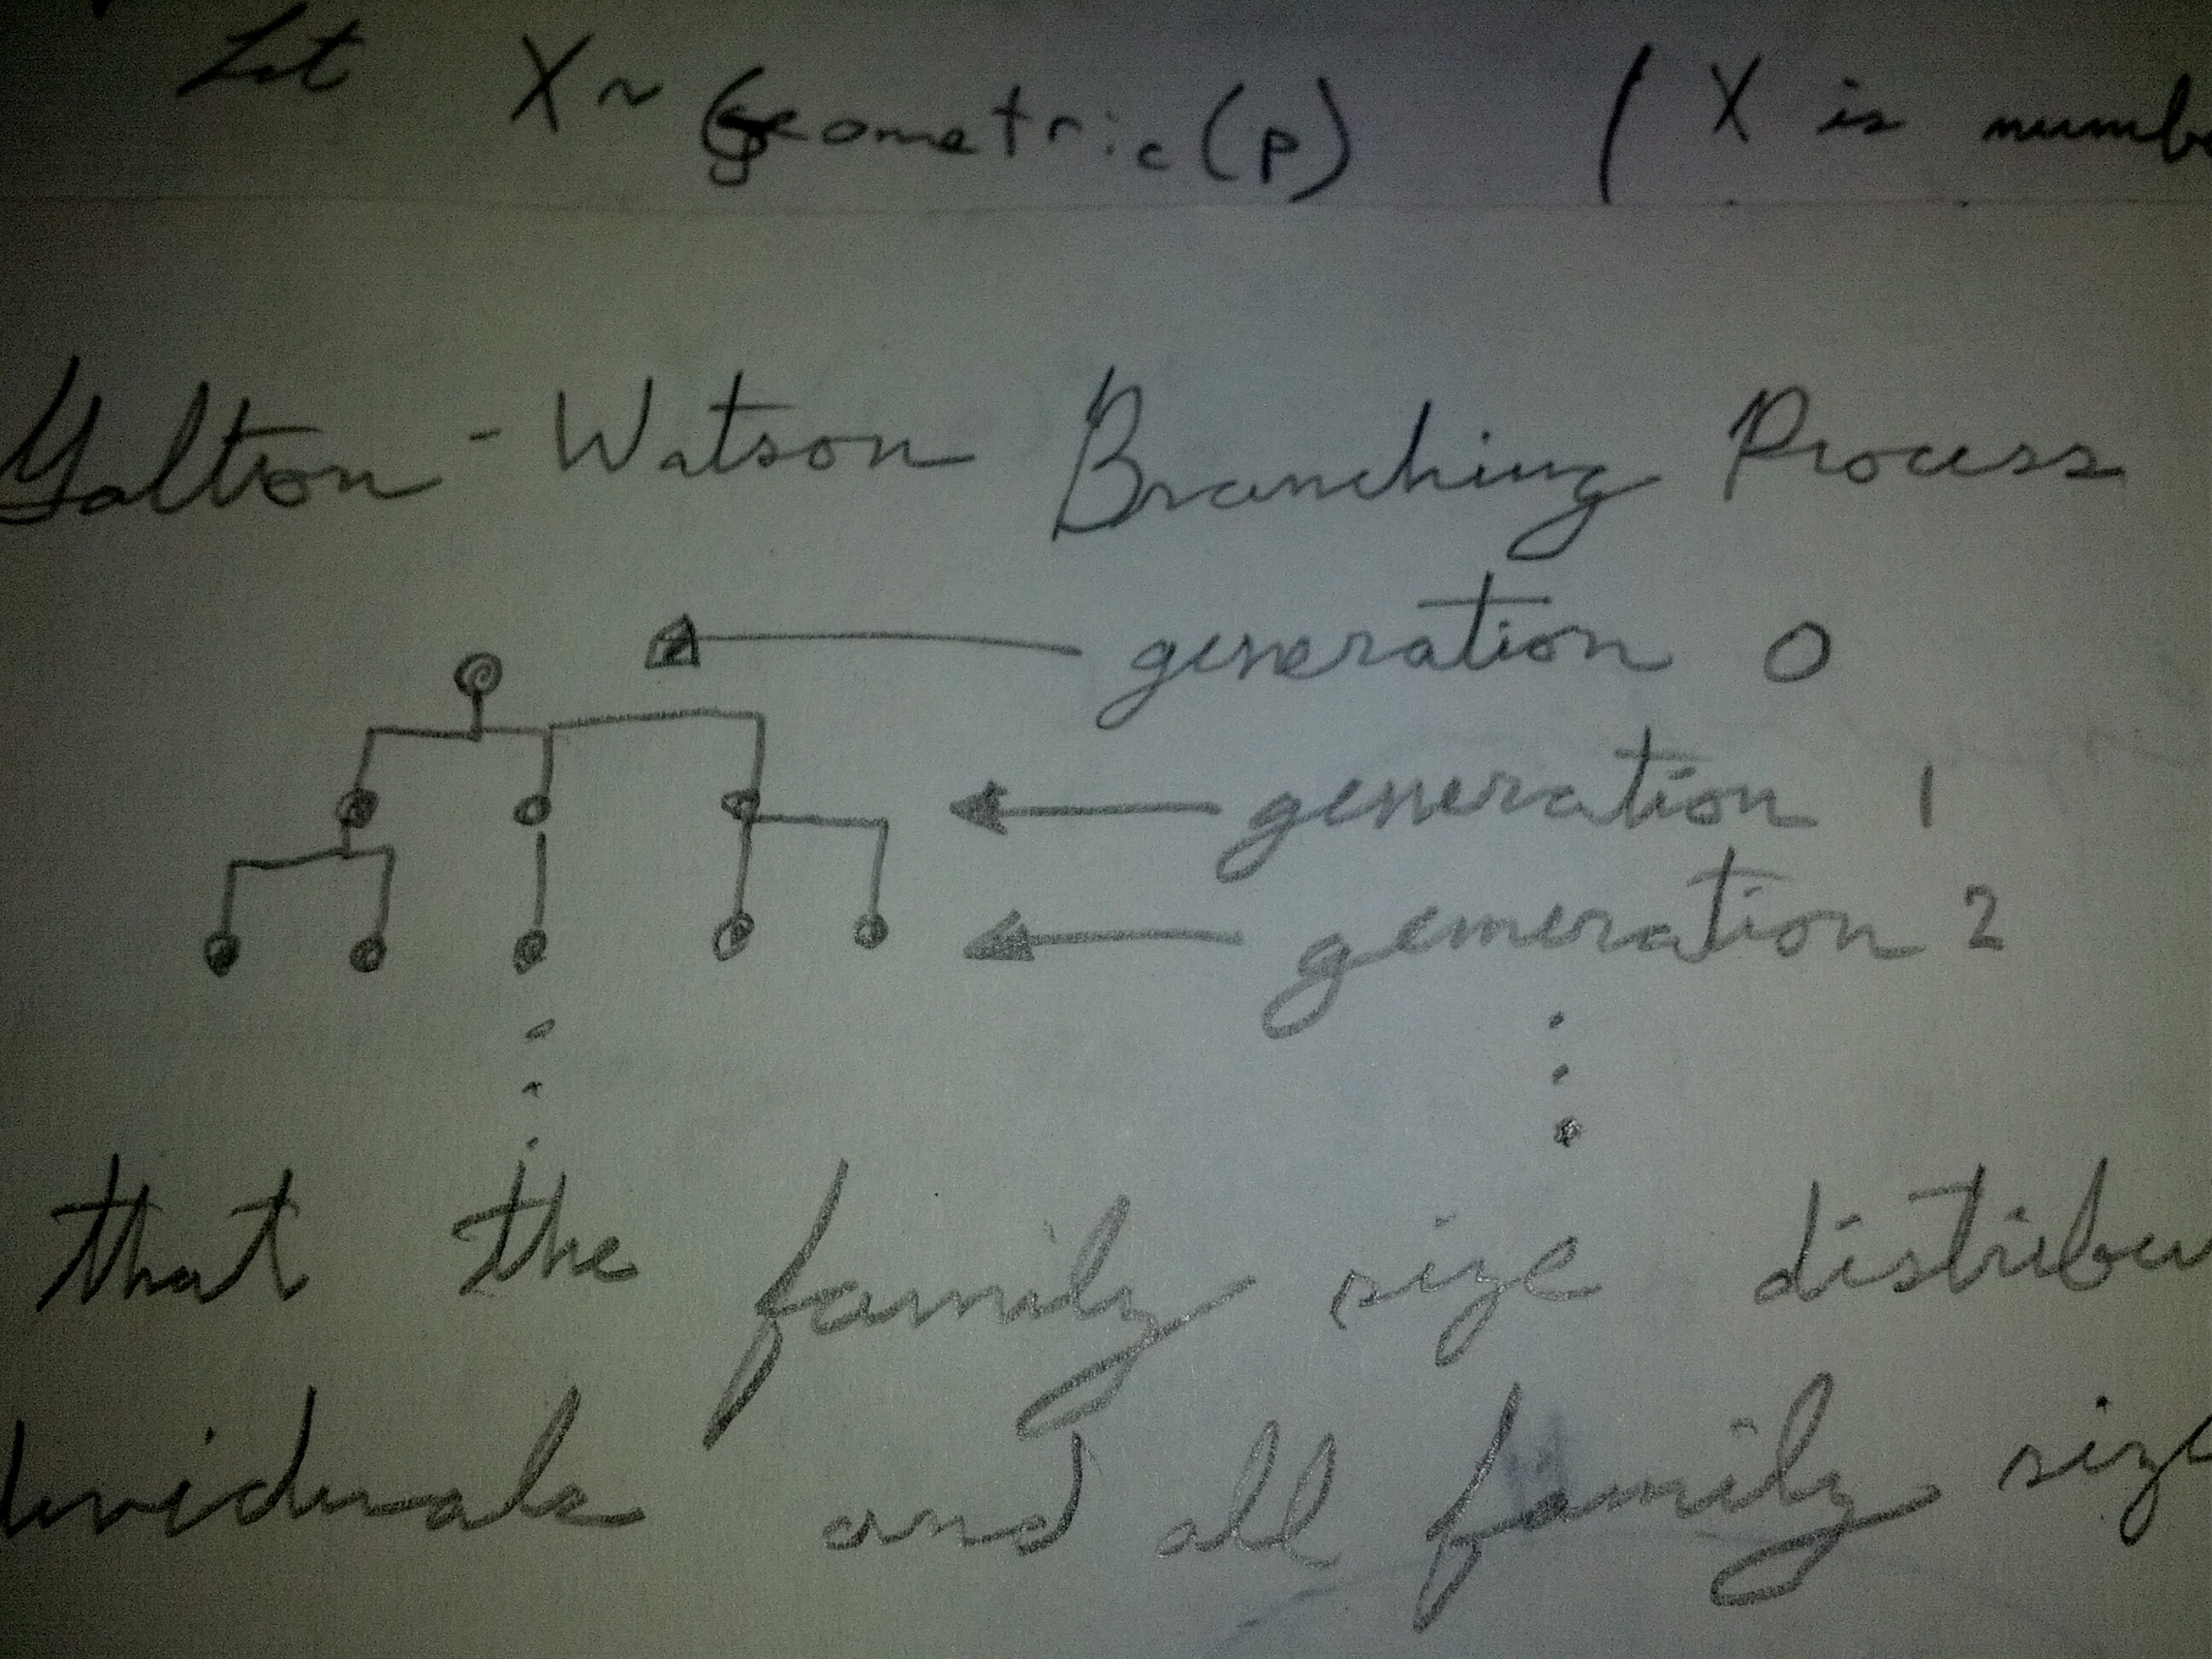 Let X ~ Geometric(p) ( X is numbe
Galton - Watson Branching Process
generation 0
generation 1
generation 2
that the family size distribu
dividuals and all family size